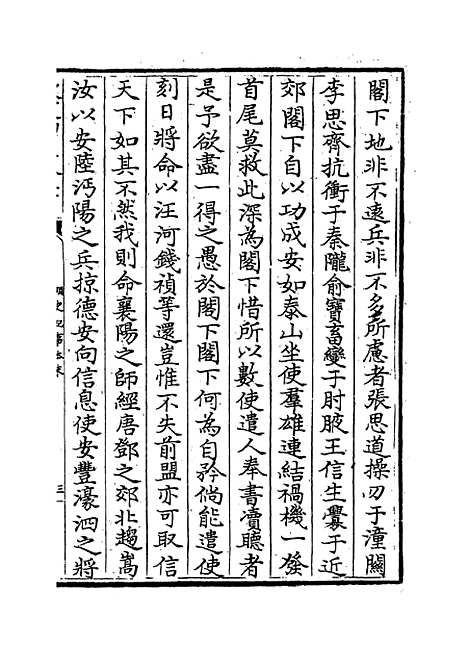 閣下地非不遠兵非不多所慮者張思道操刃于潼關
李思齊抗衡于秦隴俞寶畜變于肘腋王信生釁于近
郊閣下自以功成安如泰山坐使羣雄連結禍機一發
首尾莫救此深為閣下惜所以數使遣人奉書瀆聽者
是予欲盡一得之愚於閣下閣下何為自矜倘能遣使
刻日將命以汪河錢禎等還豈惟不失前盟亦可取信
天下如其不然我則命襄陽之師經唐鄧之郊北趨嵩
汝以安陸沔陽之兵掠德安向信息使安豐濠泗之將
明史紀事本末